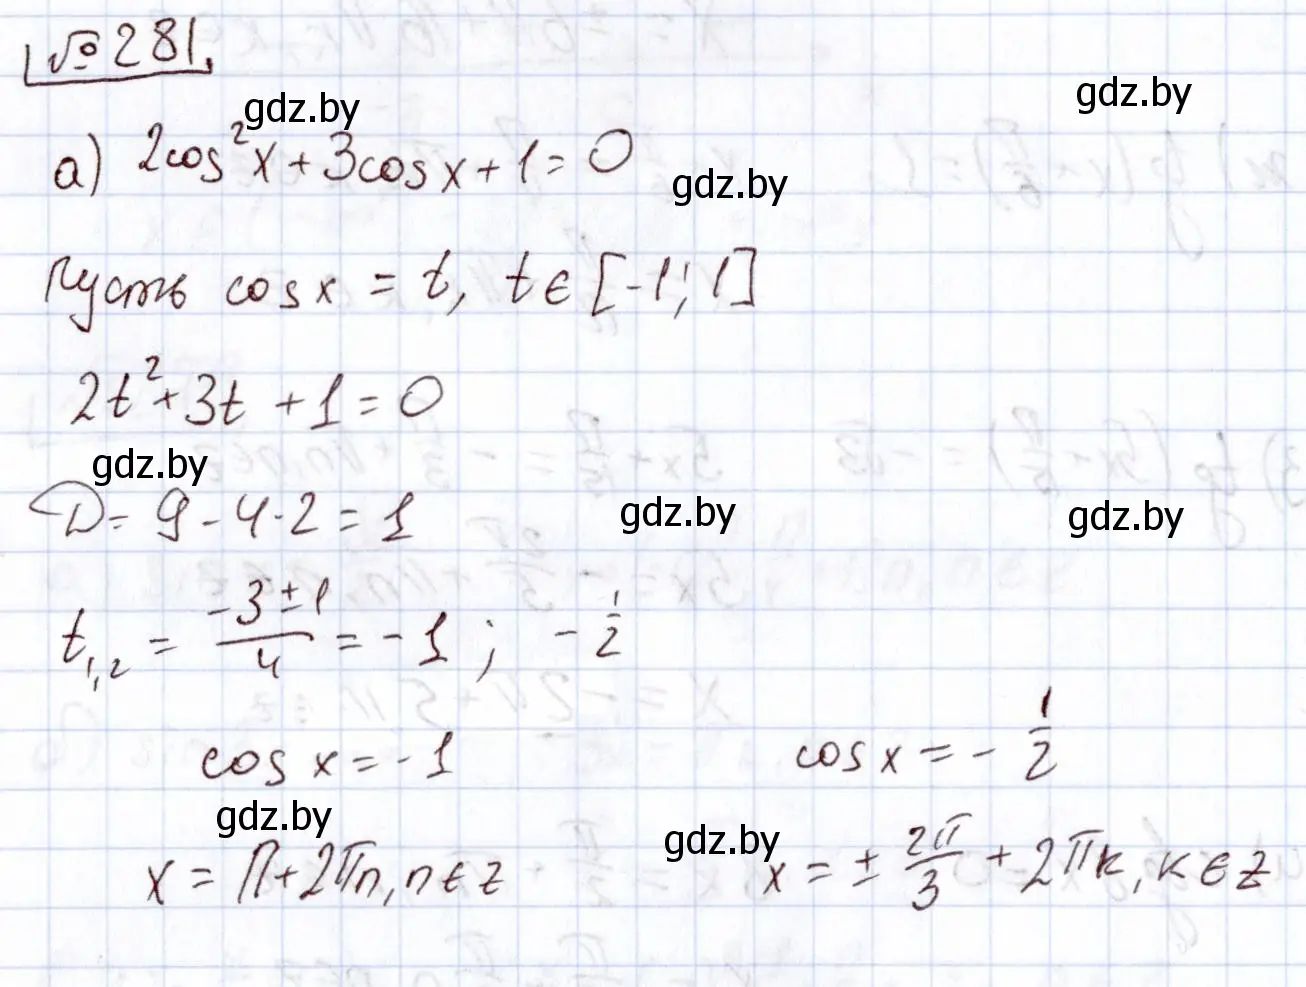 № 281.
gdz.by
gdz.by
а) 2cos²x + 3cosx + 1 = 0
gdz.by
Пусть cosx = t, t ∈ [-1; 1]
2t² + 3t + 1 = 0
gdz.by
gdz.by
gdz.by
D = 9 - 4·2 = 1
t₁,₂ = (-3 ± 1)/4 = -1 ; -1/2
cosx = -1 cosx = -1/2
gdz.by
gdz.by
x = π + 2πn, n ∈ z x = ± 2π/3 + 2πk, k ∈ z